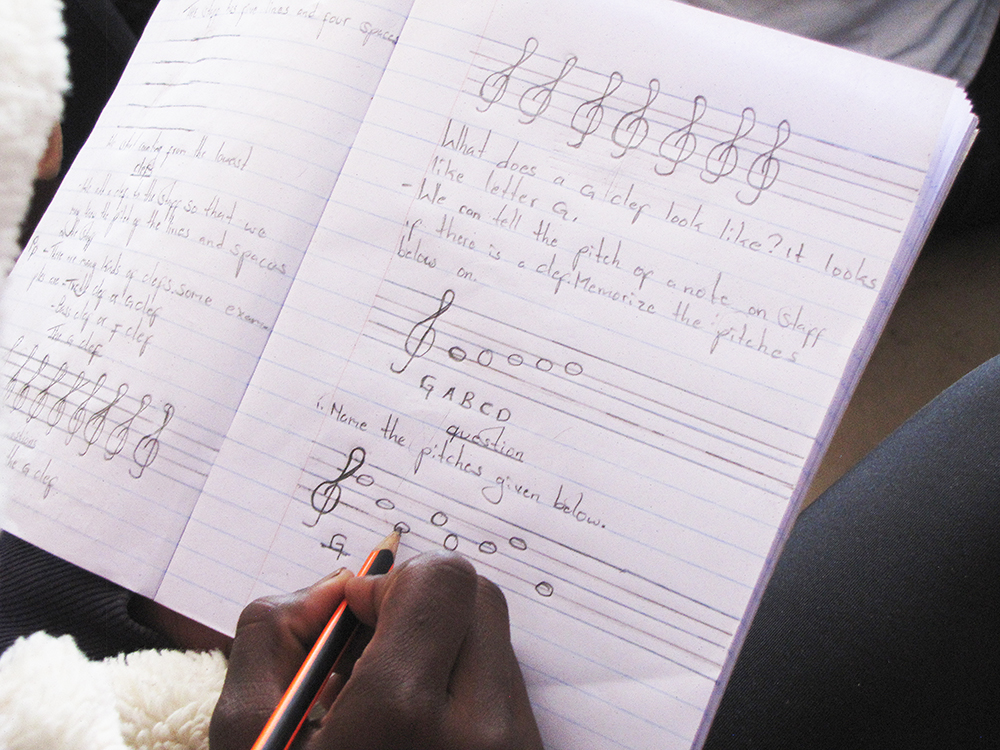 The staff has five lines and four spaces
counting from the lowest
clefs
so that we
may know the pitch of the lines and spaces
There are many kinds of clefs. some exam-
ples are - Treble clef or G clef
- Bass clef or F clef
The G clef
the G clef
What does a G clef look like? It looks
like letter G.
- We can tell the pitch of a note on staff
if there is a clef. Memorize the pitches
below on.
G A B C D
question
1. Name the pitches given below.
G